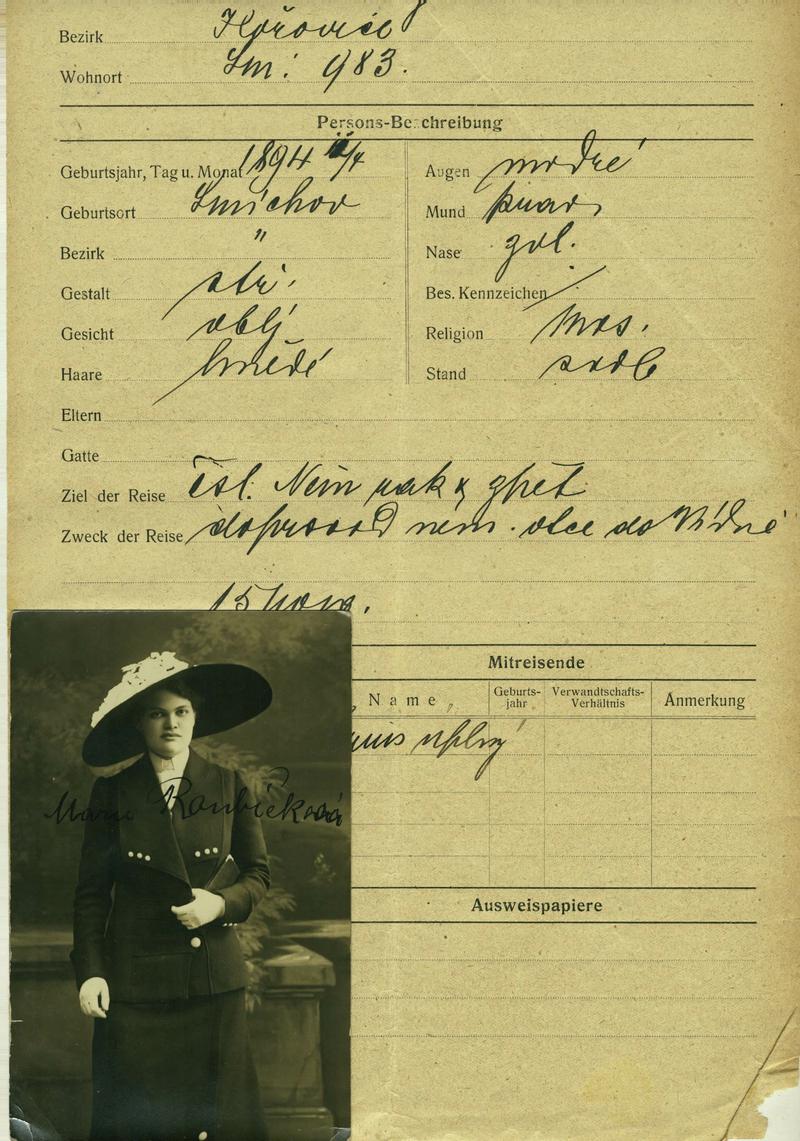 Bezirk Hořovice
Wohnort Sm. 983.
Persons-Beschreibung
Geburtsjahr, Tag u. Monat 1894 /4
Geburtsort Smíchov
Bezirk "
Gestalt stř.
Gesicht oblý
Haare hnědé
Augen modré
Mund
Nase
Bes. Kennzeichen /
Religion mos.
Stand svob
Eltern
Gatte
Ziel der Reise čsl. Něm rak & zpět
Zweck der Reise doprovod nem. otce do Vídně
15
Mitreisende
Name
Geburts-
jahr
Verwandtschafts-
Verhältnis
Anmerkung
Marie Roubíčková
Ausweispapiere